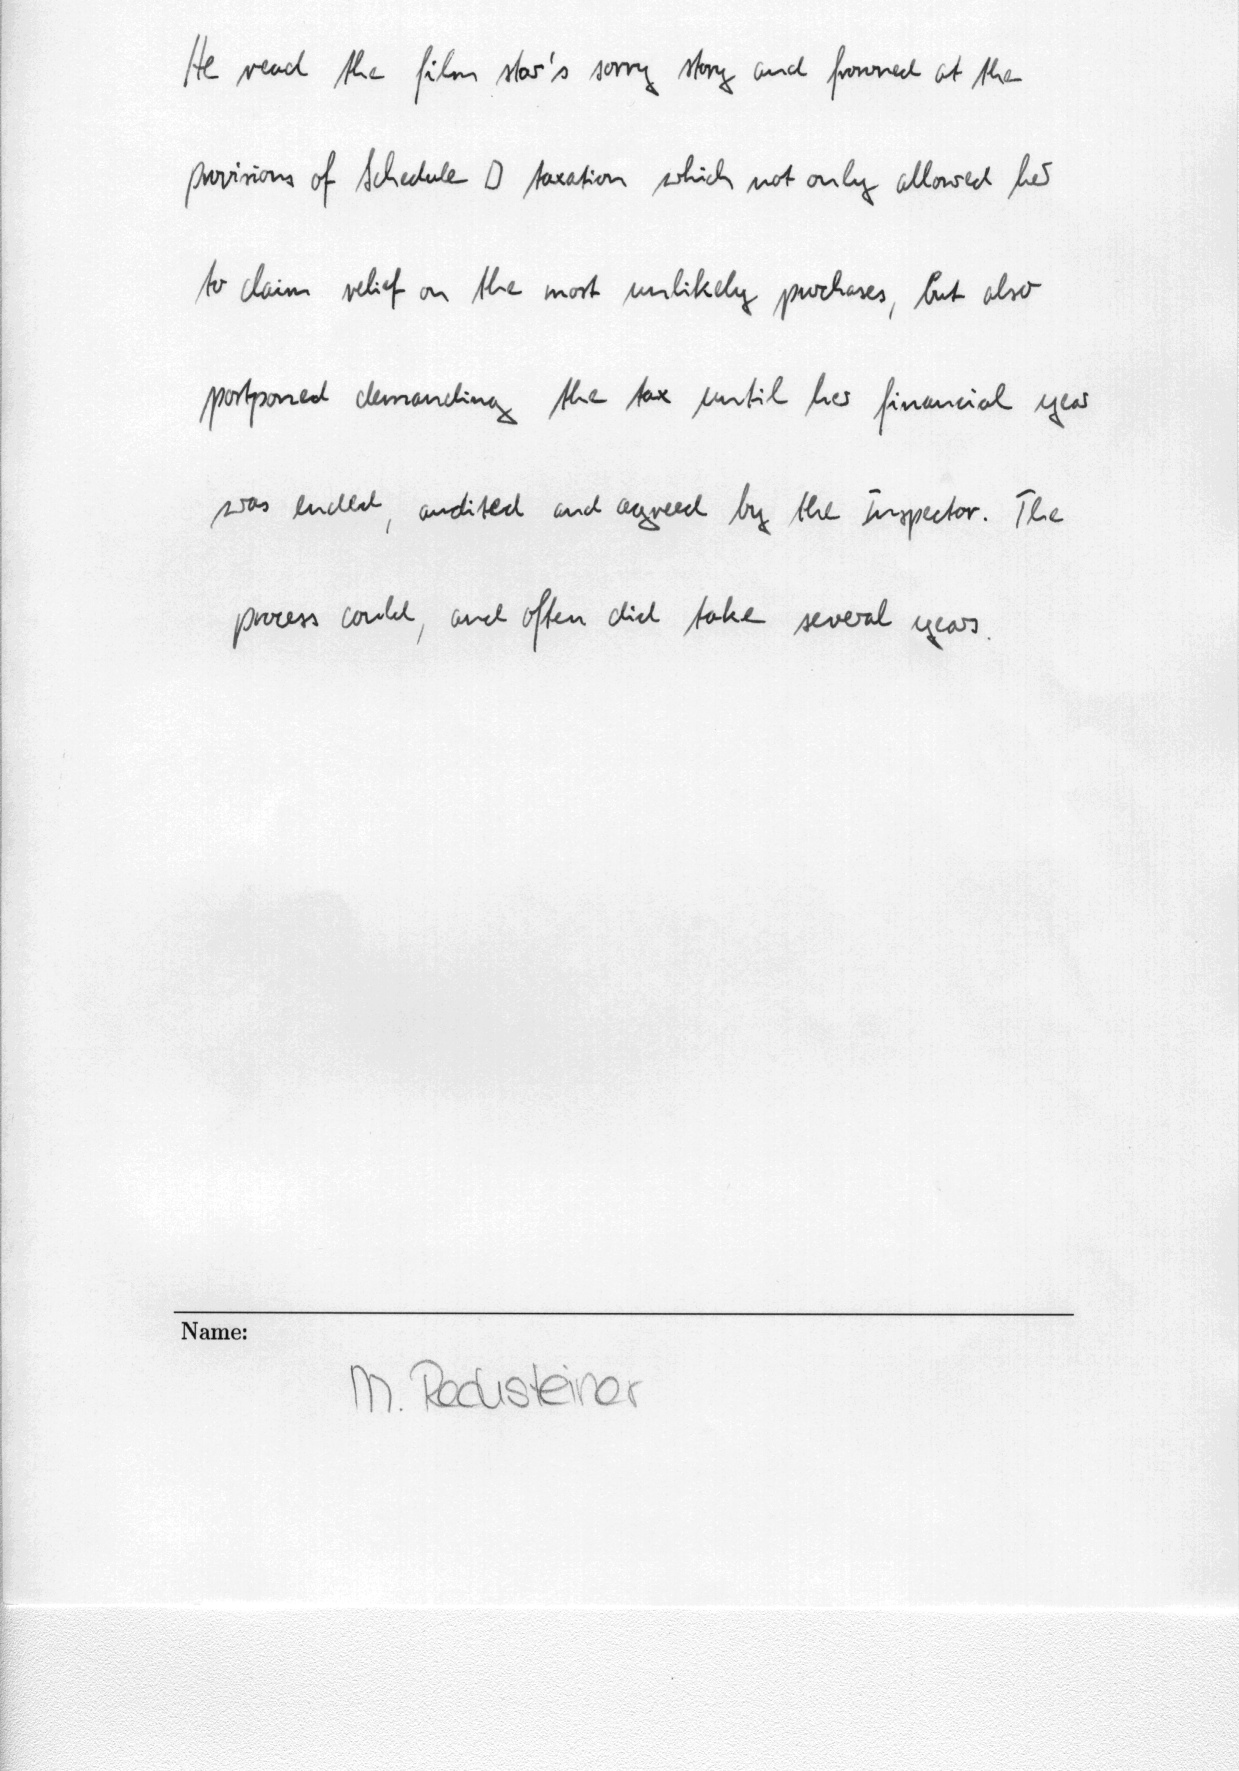 He read the film star's sorry story and frowned at the
provisions of Schedule D taxation which not only allowed her
to claim relief on the most unlikely purchases, but also
postponed demanding the tax until her financial year
was ended, audited and agreed by the Inspector. The
process could, and often did take several years.
Name:
M.